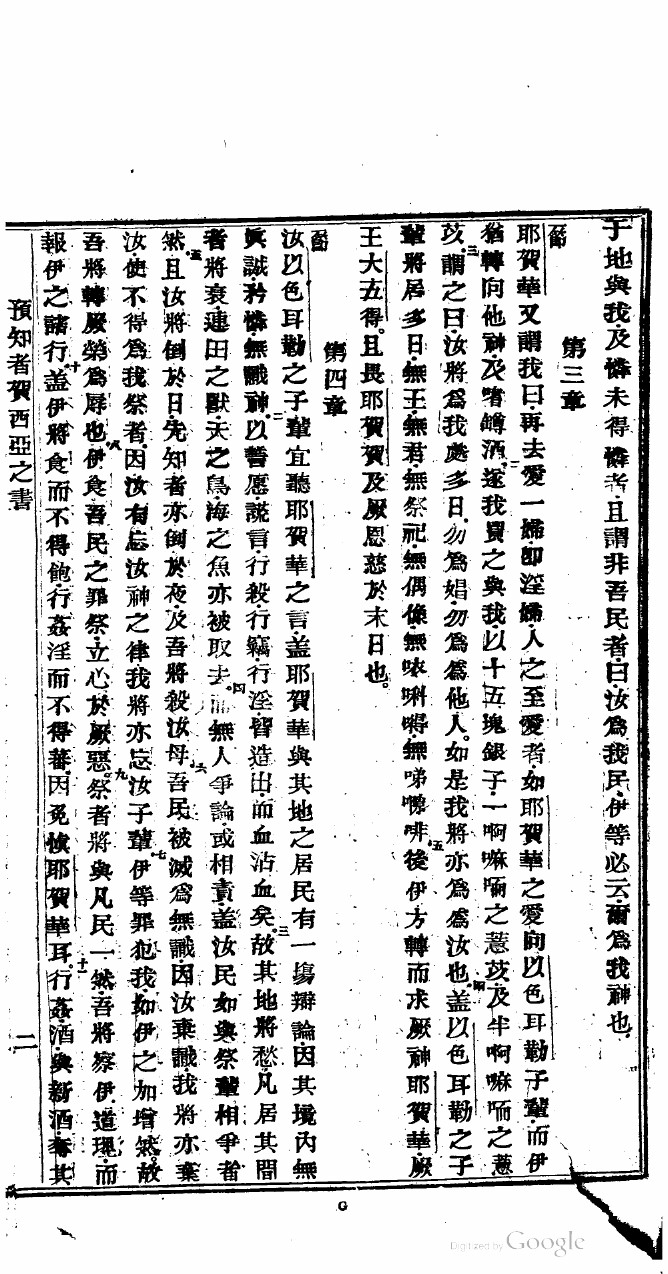 于地與我及憐未得憐者且謂非吾民者曰汝為我民伊等必云爾為我神也
第三章
節
耶賀華又謂我曰再去愛一婦卽淫婦人之至愛者如耶賀華之愛向以色耳勒子輩而伊
猶轉向他神及嗜罇酒二遂我買之與我以十五塊銀子一啊嘛𠺕之薏苡及半啊嘛𠺕之薏
苡三謂之曰汝將為我處多日勿為娼勿為為他人如是我將亦為為汝也四盖以色耳勒之子
輩將居多日無王無君無祭祀無偶像無𠲖唎嘚無啼㘔啡五後伊方轉而求厥神耶賀華厥
王大五得且畏耶賀華及厥恩慈於末日也
第四章
節
汝以色耳勒之子輩宜聽耶賀華之言盖耶賀華與其地之居民有一塲辯論因其境內無
眞誠矜憐無識神二以誓愿謊言行殺行竊行淫皆造出而血沾血矣三故其地將愁凡居其間
者將衰連田之獸天之鳥海之魚亦被取去四而無人爭論或相責盖汝民如與祭輩相爭者
然五且汝將倒於日先知者亦倒於夜及吾將殺汝母六吾民被滅為無識因汝棄識我將亦棄
汝使不得為我祭者因汝有忘汝神之律我將亦忘汝子輩七伊等罪犯我如伊之加增然故
吾將轉厥榮為辱也八伊食吾民之罪祭立心於厥惡九祭者將與凡民一然吾將察伊道理而
報伊之諸行十盖伊將食而不得飽行姦淫而不得蕃因免恢耶賀華耳十一行姦酒與新酒奪其
預知者賀西亞之書
二
G
Digitized by Google